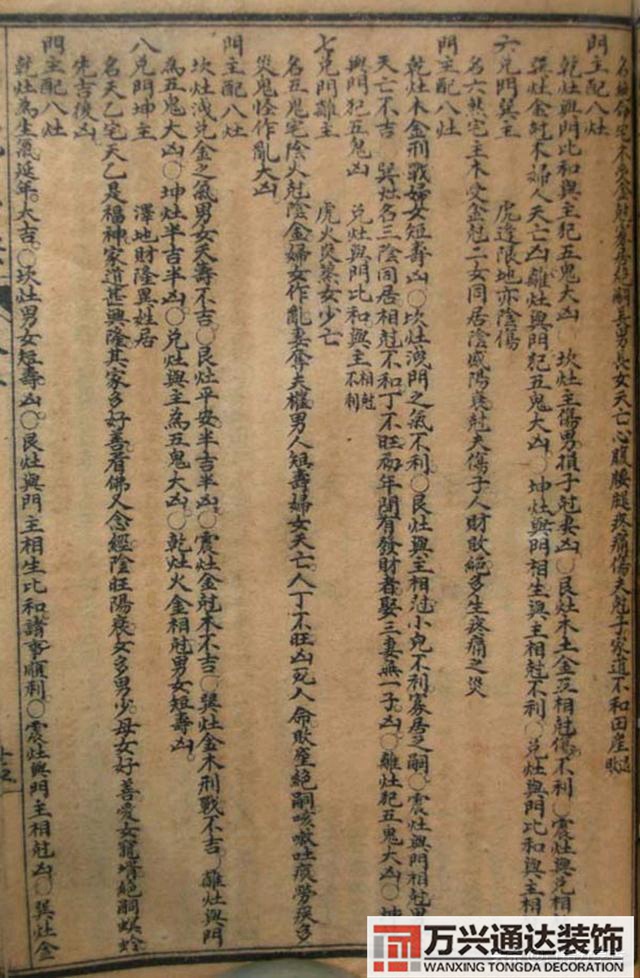 名絕命宅木受金尅寡居絕嗣長男長女夭亡心腹腰腿疼痛傷夫尅子家道不和田產退敗
門主配八灶
乾灶與門比和與主犯五鬼大凶 坎灶主傷男損子尅妻凶〇艮灶木土金互相尅傷不利〇震灶與兌相
巽灶金尅木婦人夭亡凶〇離灶與門犯五鬼大凶〇坤灶與門相生與主相尅不利〇兌灶與門比和與主相
六兌門巽主 虎逢限地亦陰傷
名六煞宅主木受金尅二女同居陰盛陽衰尅夫傷子人財敗絕多生疼痛之災
門主配八灶
乾灶木金刑戰婦女短壽凶〇坎灶洩門之氣不利〇艮灶與主相尅小兒不利寡居乏嗣〇震灶與門相尅男
夭亡不吉 巽灶名三陰同居相尅不和丁不旺初年間有發財者娶三妻無一子凶〇離灶犯五鬼大凶〇坤
與門犯五鬼凶 兌灶與門比和與主相尅不利
七兌門離主 虎火炎蒸女少亡
名五鬼宅陰火尅陰金婦女作亂妻奪夫權男人短壽婦女夭亡人丁不旺凶死人命敗產絕嗣咳嗽吐痰勞痰多
災鬼怪作亂大凶
門主配八灶
坎灶洩兌金之氣男女夭壽不吉〇艮灶平安半吉半凶〇震灶金尅木不吉〇巽灶金木刑戰不吉 離灶與門
為五鬼大凶〇坤灶半吉半凶〇兌灶與主為五鬼大凶〇乾灶火金相尅男女短壽凶
八兌門坤主 澤地財隆異姓居
名天乙宅天乙是福神家道甚興隆其家多好善看佛又念經陰旺陽衰女多男少母女好善愛女寵壻絕嗣螟蛉
先吉後凶
門主配八灶
乾灶為生氣延年大吉〇坎灶男女短壽凶〇艮灶與門主相生比和諸事順利〇震灶與門主相尅凶〇巽灶金
万兴通达装饰
WANXING TONGDA DECORATION